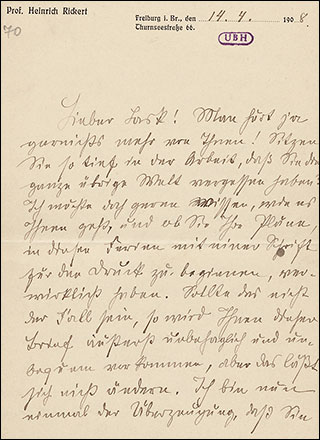 Prof. Heinrich Rickert
Freiburg i. Br., den 14. 4. 1908.
Thurnseestraße 66.
70
UBH
Lieber Lask! Man hört ja
garnichts mehr von Ihnen! Sitzen
Sie so tief in der Arbeit, daß Sie die
ganze übrige Welt vergessen haben?
Ich möchte doch gerne wissen, wie es
Ihnen geht, und ob Sie Ihre Pläne,
in diesen Ferien mit einer Schrift
für den Druck zu beginnen, ver-
wirklicht haben. Sollte das nicht
der Fall sein, so wird Ihnen dieser
Brief äußerst unbehaglich und un-
bequem vorkommen, aber das läßt
sich nicht ändern. Ich bin nun
einmal der Überzeugung, daß Sie